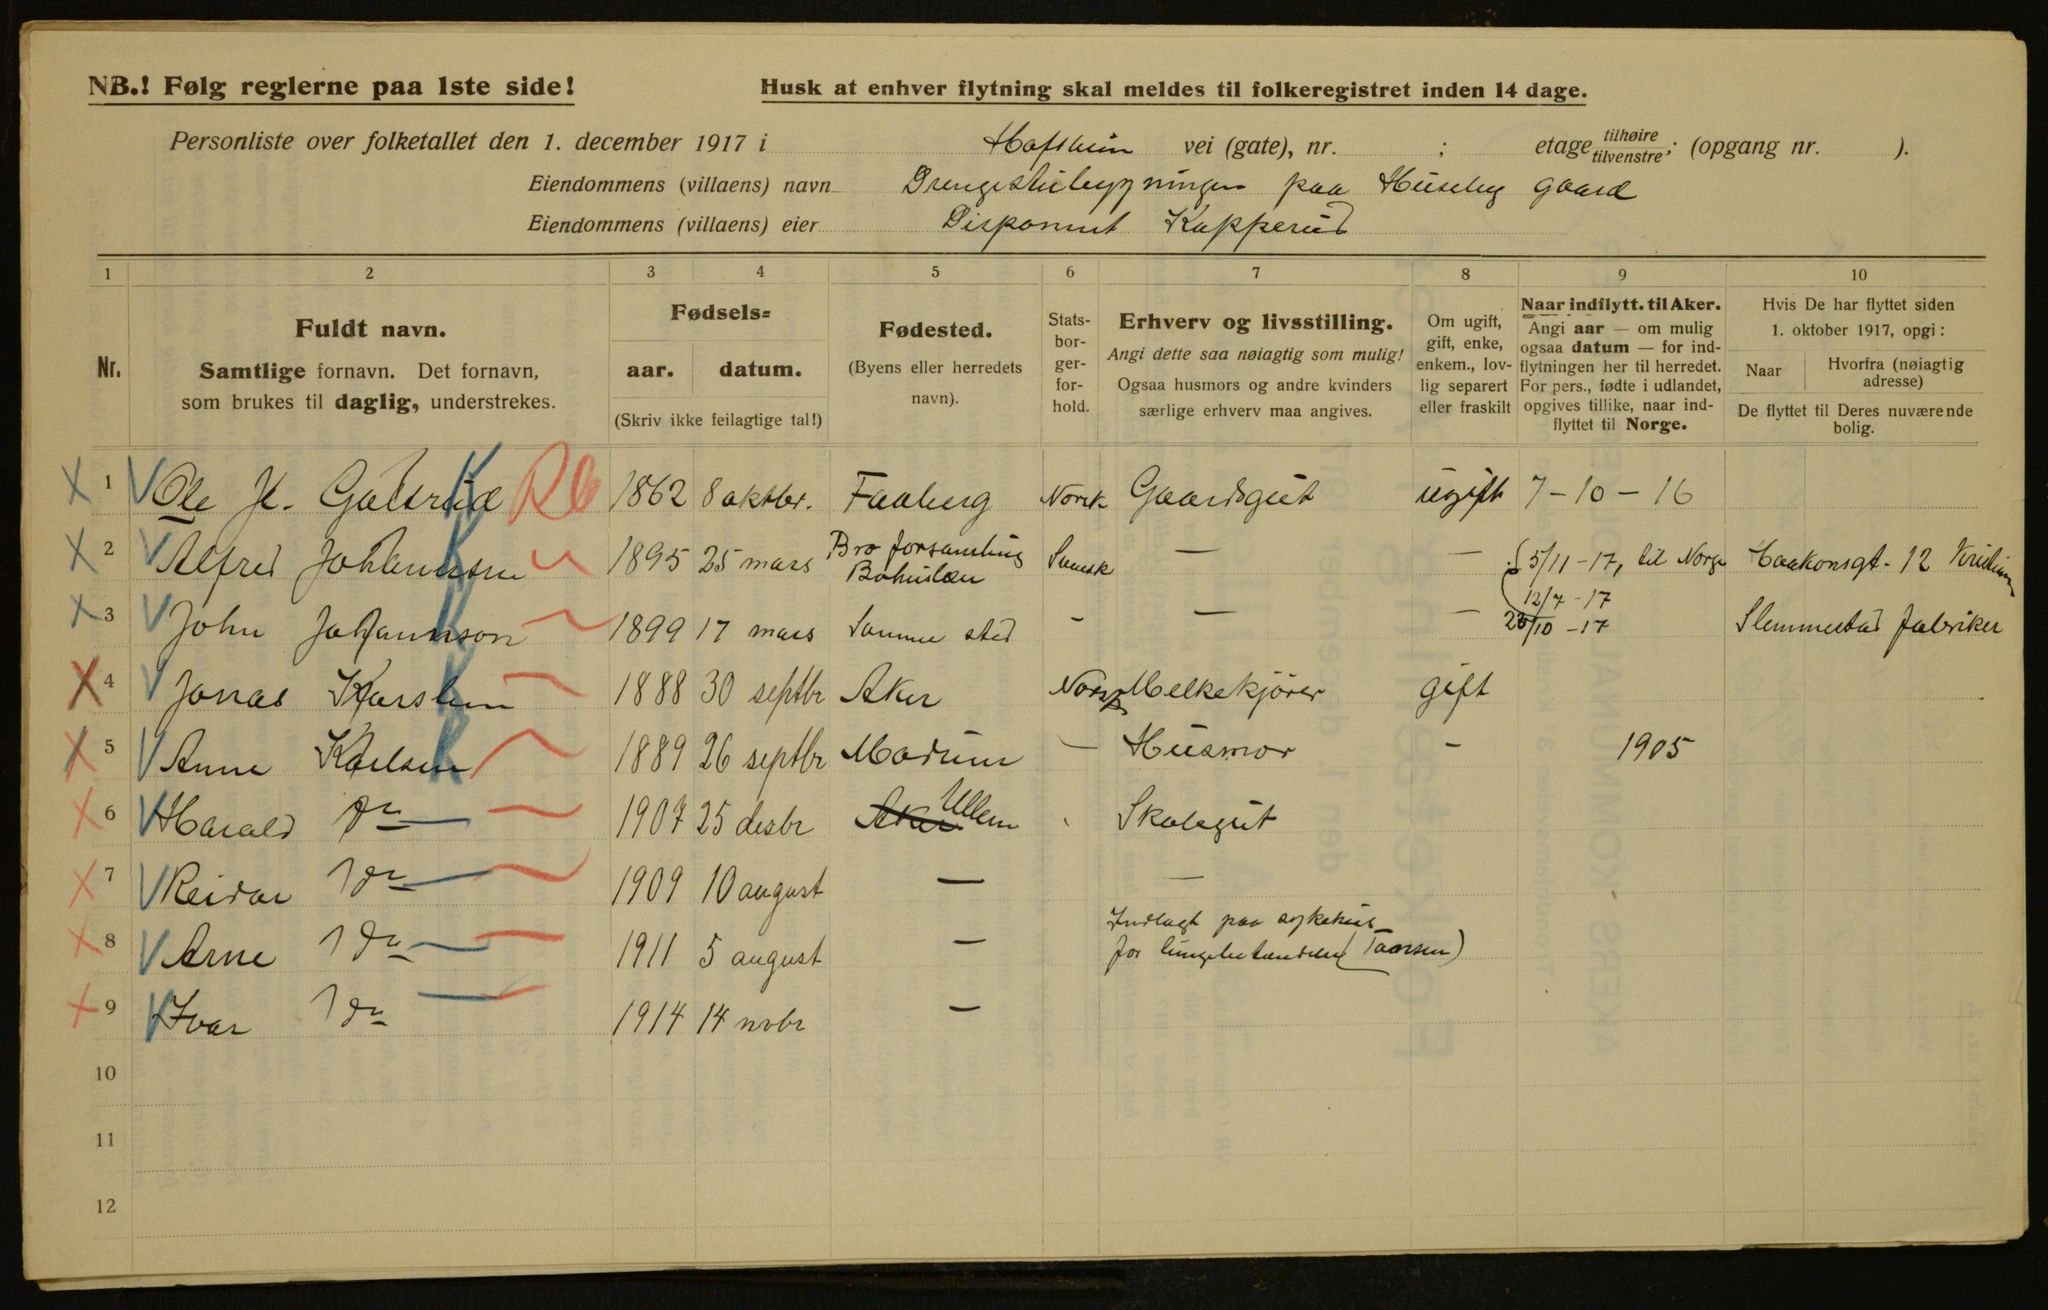 NB.! Følg reglerne paa 1ste side!
Husk at enhver flytning skal meldes til folkeregistret inden 14 dage.
Personliste over folketallet den 1. december 1917 i vei (gate), nr. ; etage tilhøire/tilvenstre; (opgang nr. ).
Eiendommens (villaens) navn paa Huseby gaard
Eiendommens (villaens) eier Disponent Kopperud
1 2 3 4 5 6 7 8 9 10
Nr.
Fuldt navn.
Samtlige fornavn. Det fornavn,
som brukes til daglig, understrekes.
Fødsels=
aar. datum.
(Skriv ikke feilagtige tal!)
Fødested.
(Byens eller herredets
navn).
Stats-
bor-
ger-
for-
hold.
Erhverv og livsstilling.
Angi dette saa nøiagtig som mulig!
Ogsaa husmors og andre kvinders
særlige erhverv maa angives.
Om ugift,
gift, enke,
enkem., lov-
lig separert
eller fraskilt
Naar indflytt. til Aker.
Angi aar — om mulig
ogsaa datum — for ind-
flytningen her til herredet.
For pers., fødte i udlandet,
opgives tillike, naar ind-
flyttet til Norge.
Hvis De har flyttet siden
1. oktober 1917, opgi:
Naar
Hvorfra (nøiagtig
adresse)
De flyttet til Deres nuværende
bolig.
1 Ole 1862 8 oktbr. Faaberg Norsk Gaardsgut ugift 7-10-16
2 Alfred Johannsen 1895 25 mars Bro forsamling Svensk — — 5/11-17, til Norge Haakonsgt. 12
Bohuslæn
12/7-17
3 John Johannson 1899 17 mars Samme sted - — — 23/10-17 Slemmestad fabriker
4 Jonas Karlsen 1888 30 septbr Aker Norsk Melkekjører gift
5 Anne Karlsen 1889 26 septbr Modum — Husmor - 1905
6 Harald do 1907 25 desbr Aker Ullern Skolegut
7 Reidar do 1909 10 august — —
8 Arne do 1911 5 august — Indlagt paa sykehus
for
9 Ivar do 1914 14 novbr —
10
11
12